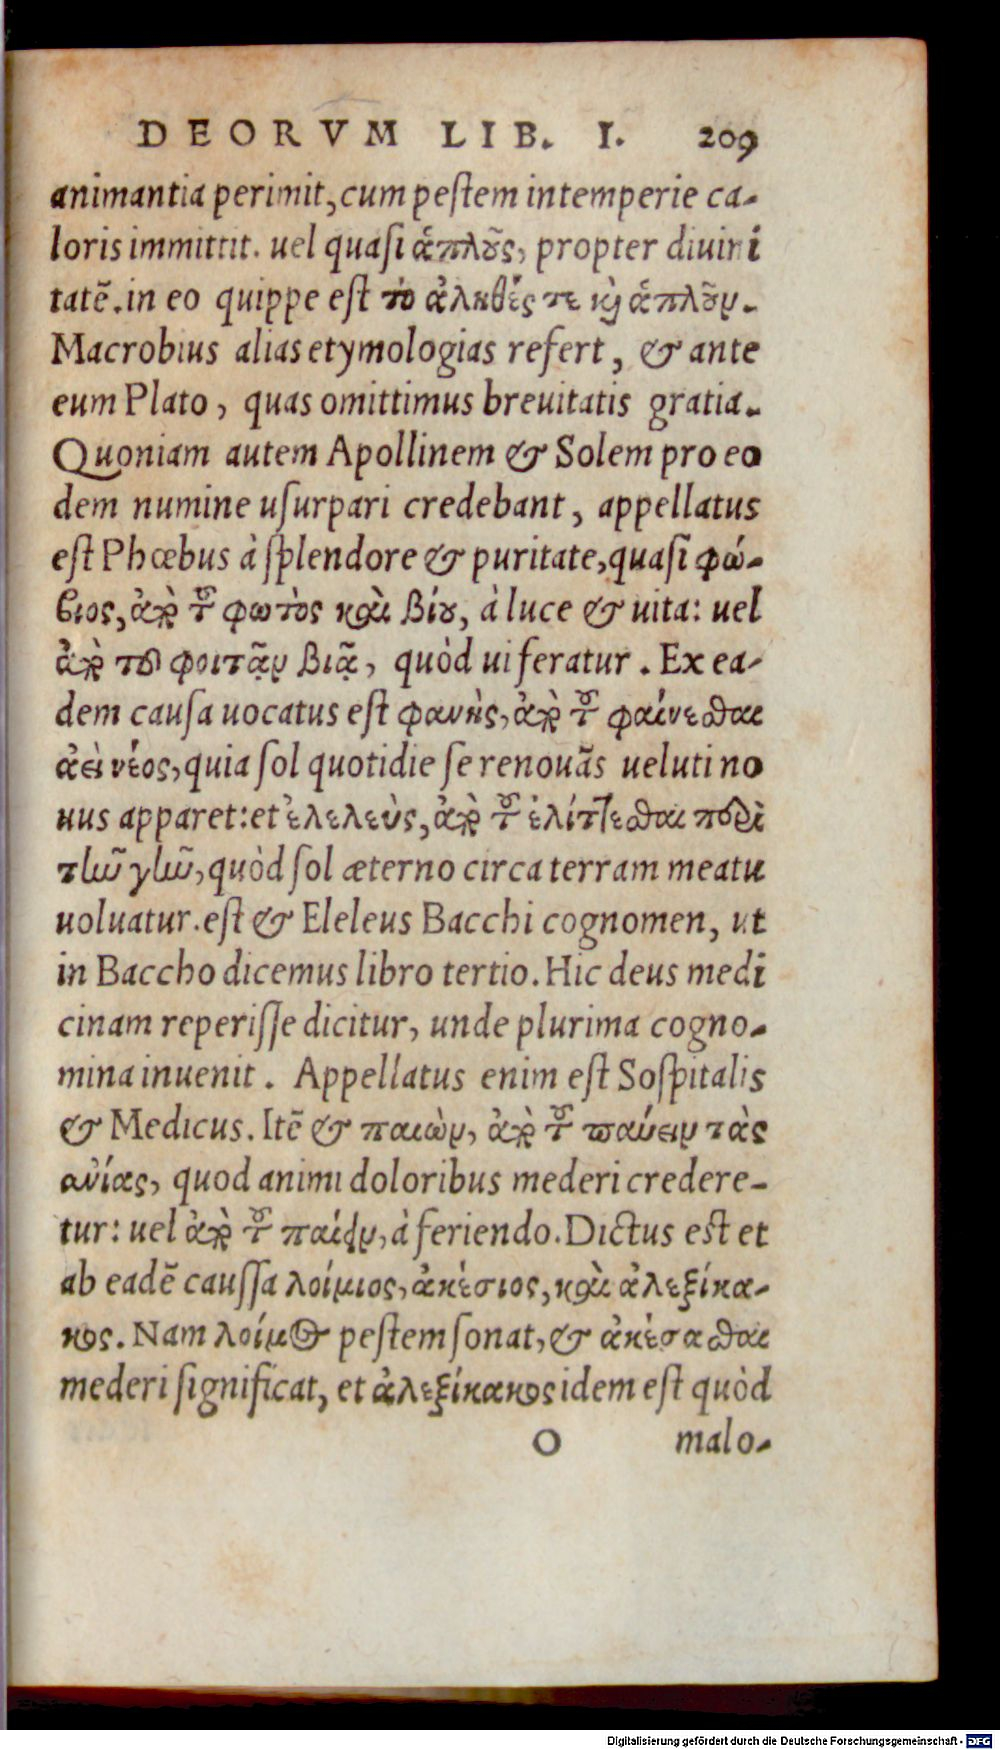 DEORVM LIB. I. 209
animantia perimit, cum pestem intemperie ca-
loris immittit. uel quasi ἁπλοῦς, propter diuini
tatẽ. in eo quippe est τὸ ἀληθές τε καὶ ἁπλοῦν.
Macrobius alias etymologias refert, & ante
eum Plato, quas omittimus breuitatis gratia.
Quoniam autem Apollinem & Solem pro eo
dem numine usurpari credebant, appellatus
est Phœbus à splendore & puritate, quasi φώ-
βιος, ἀπὸ τοῦ φωτὸς καὶ βίου, à luce & uita: uel
ἀπὸ τοῦ φοιτᾷν βιᾷ, quòd ui feratur. Ex ea-
dem causa uocatus est φανὴς, ἀπὸ τοῦ φαίνεσθαι
ἀεὶ νέος, quia sol quotidie se renouãs ueluti no
uus apparet: et ἐλελεὺς, ἀπὸ τοῦ ἑλίττεσθαι περὶ
τὴν γῆν, quòd sol æterno circa terram meatu
uoluatur. est & Eleleus Bacchi cognomen, ut
in Baccho dicemus libro tertio. Hic deus medi
cinam reperisse dicitur, unde plurima cogno-
mina inuenit. Appellatus enim est Sospitalis
& Medicus. Itẽ & παιὼν, ἀπὸ τοῦ παύειν τὰς
ανίας, quod animi doloribus mederi credere-
tur: uel ἀπὸ τοῦ παίειν, à feriendo. Dictus est et
ab eadẽ caussa λοίμιος, ἀκέσιος, καὶ ἀλεξίκα-
κος. Nam λοίμος pestem sonat, & ἀκέσασθαι
mederi significat, et ἀλεξίκακος idem est quòd
O malo-
Digitalisierung gefördert durch die Deutsche Forschungsgemeinschaft - DFG